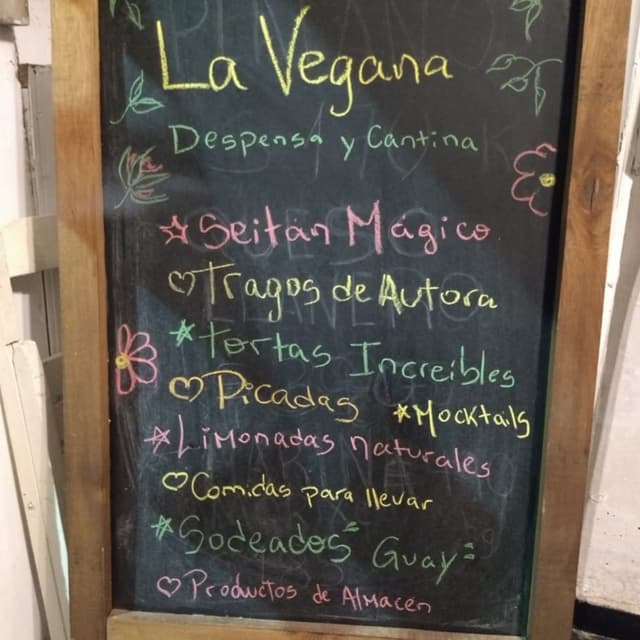 La Vegana
Despensa y Cantina
Seitán Mágico
Tragos de Autora
Tortas Increíbles
Picadas
Mocktails
Limonadas naturales
Comidas para llevar
Sodeados "Guay"
Productos de Almacén